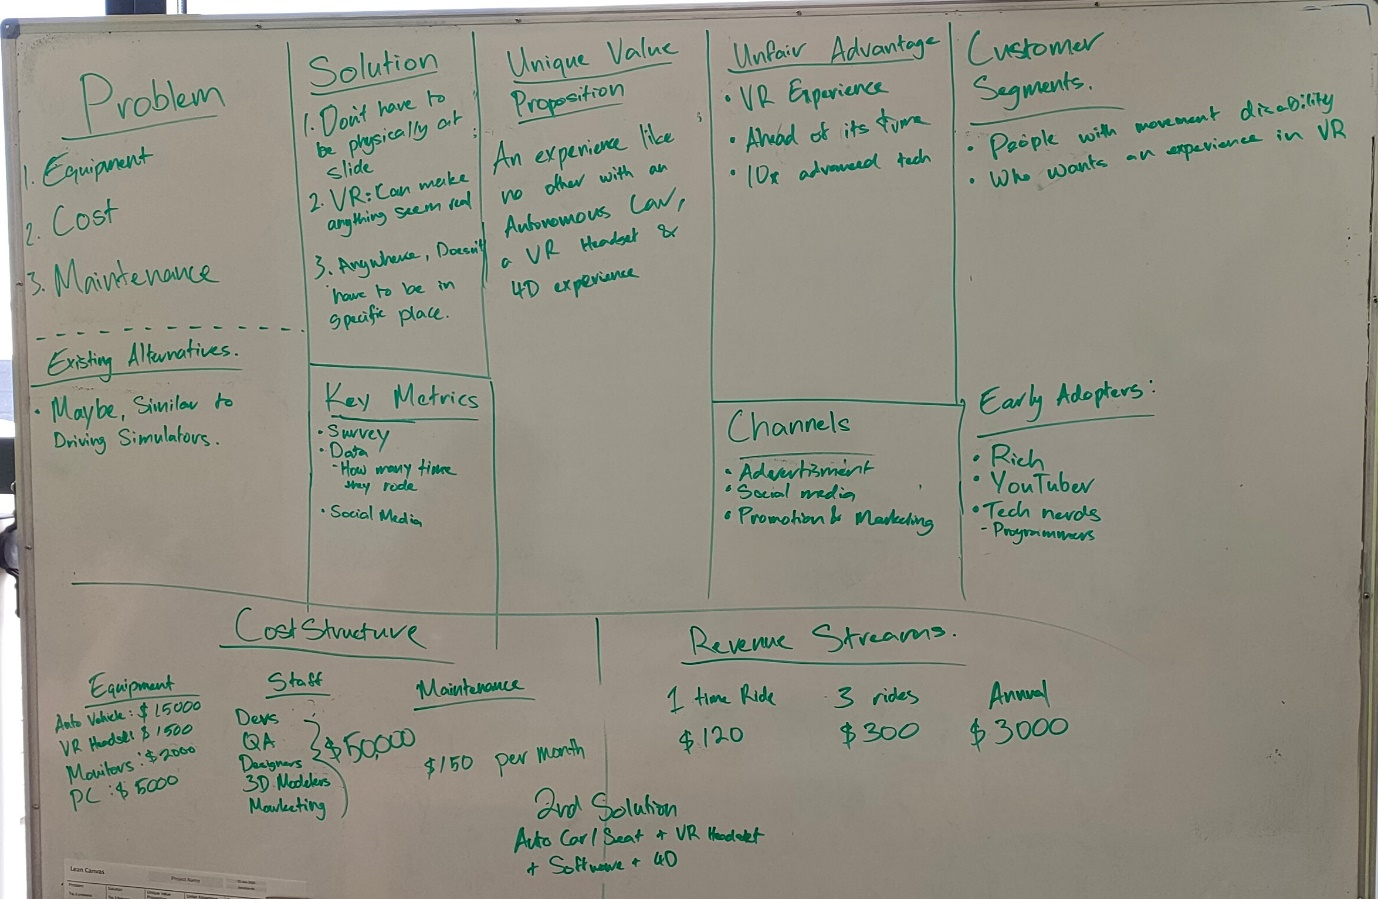 Problem
1. Equipment
2. Cost
3. Maintenance
Existing Alternatives.
• Maybe, Similar to
Driving Simulators.
Solution
1. Don't have to
be physically at
slide
2. VR: Can make
anything seem real
3. Anywhere, Doesn't
have to be in
specific place.
Key Metrics
• Survey
• Data
- How many time
they rode
• Social Media
Unique Value
Proposition
An experience like
no other with an
Autonomous Car,
a VR Headset &
4D experience
Unfair Advantage
• VR Experience
• Ahead of its time
• 10x advanced tech
Channels
• Advertisment
• Social media
• Promotion & Marketing
Customer
Segments.
• People with movement disability
• Who wants an experience in VR
Early Adopters:
• Rich
• YouTuber
• Tech nerds
- Programmers
Cost Structure
Equipment
Auto Vehicle: $ 15000
VR Headset $ 1500
Monitors: $ 2000
PC: $ 5000
Staff
Devs
QA
Designers
3D Modelers
Marketing
$50,000
Maintenance
$150 per month
Revenue Streams.
1 time Ride
$120
3 rides
$300
Annual
$3000
2nd Solution
Auto Car/Seat + VR Headset
+ Software + 4D
Lean Canvas
Project Name